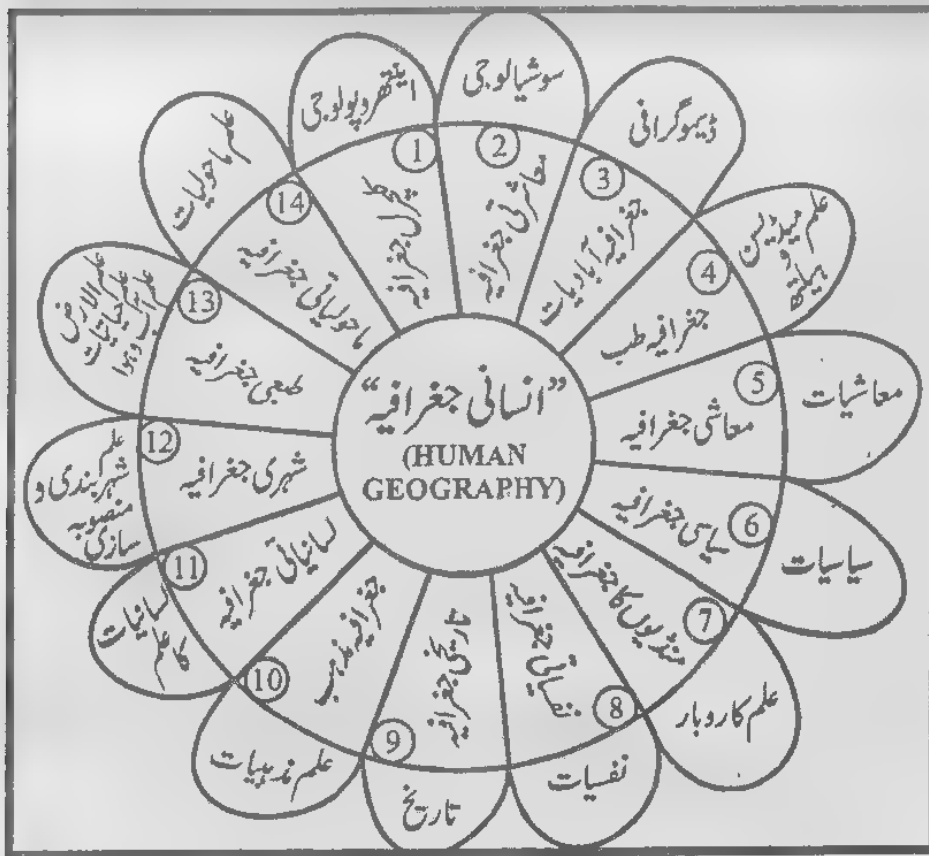 ”انسانی جغرافیہ“
(HUMAN
GEOGRAPHY)
1
کلچرل جغرافیہ
اینتھروپولوجی
2
معاشرتی جغرافیہ
سوشیالوجی
3
جغرافیہ آبادیات
ڈیموگرافی
4
جغرافیہ طب
علم میڈیسن
و
ہیلتھ
5
معاشی جغرافیہ
معاشیات
6
سیاسی جغرافیہ
سیاسیات
7
منڈیوں کا جغرافیہ
علم کاروبار
8
نفسیاتی جغرافیہ
نفسیات
9
تاریخی جغرافیہ
تاریخ
10
جغرافیہ مذہب
علم مذہبیات
11
لسانیاتی جغرافیہ
لسانیات
کا علم
12
شہری جغرافیہ
علم
شہر بندی و
منصوبہ
سازی
13
طبعی جغرافیہ
علم الارض
علم حیاتیات
علم آب و ہوا
14
ماحولیاتی جغرافیہ
علم ماحولیات